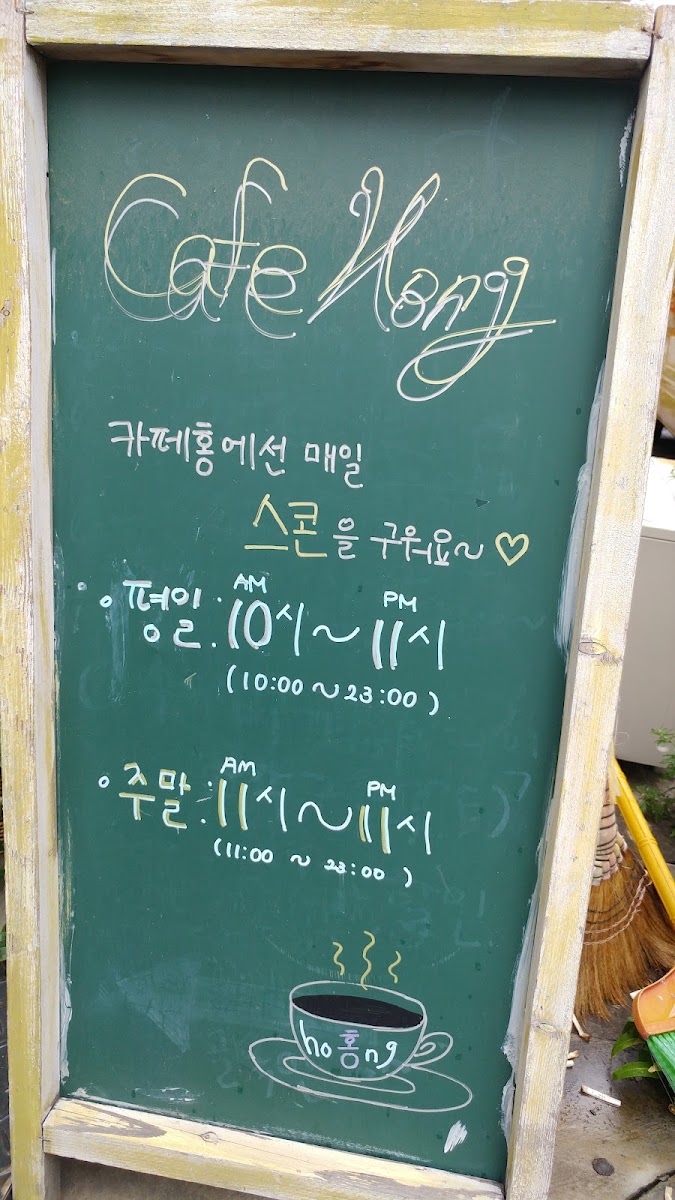 Cafe Hong
카페홍에선 매일
스콘을 구워요~♡
• 평일 : AM 10시 ~ PM 11시
(10:00 ~ 23:00)
• 주말 : AM 11시 ~ PM 11시
(11:00 ~ 23:00)
ho홍ng